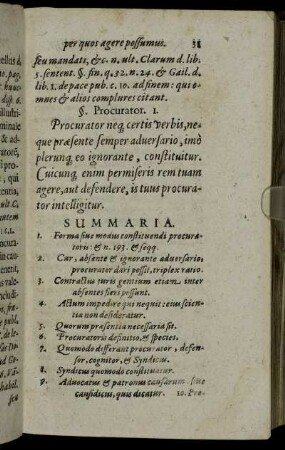 per quos agere possumus. 38
seu mandati, &c. n. ult. Clarum d. lib.
5. sentent. §. fin. q. 32. n. 24. & Gail. d.
lib. 1. de pace pub. c. 10. ad finem: qui o-
mnes & alios complures citant.
§. Procurator. 1.
Procurator neq; certis verbis, ne-
que præsente semper adversario, imò
plerunq; eo ignorante, constituitur.
Cuicunq; enim permiseris rem tuam
agere, aut defendere, is tuus procura-
tor intelligitur.
SUMMARIA.
1. Forma sive modus constituendi procura-
toris: & n. 193. & seqq.
2. Cur, absente & ignorante adversario,
procurator dari possit, triplex ratio.
3. Contractus juris gentium etiam inter
absentes fieri possunt.
4. Actum impedire qui nequit: ejus scien-
tia non desideratur.
5. Quorum præsentia necessaria sit.
6. Procuratoris definitio, & species.
7. Quomodo differant procurator, defen-
sor, cognitor, & Syndicus.
8. Syndicus quomodo constituatur.
9. Advocatus & patronus causarum sive
causidicus, quis dicatur. 10. Pro-